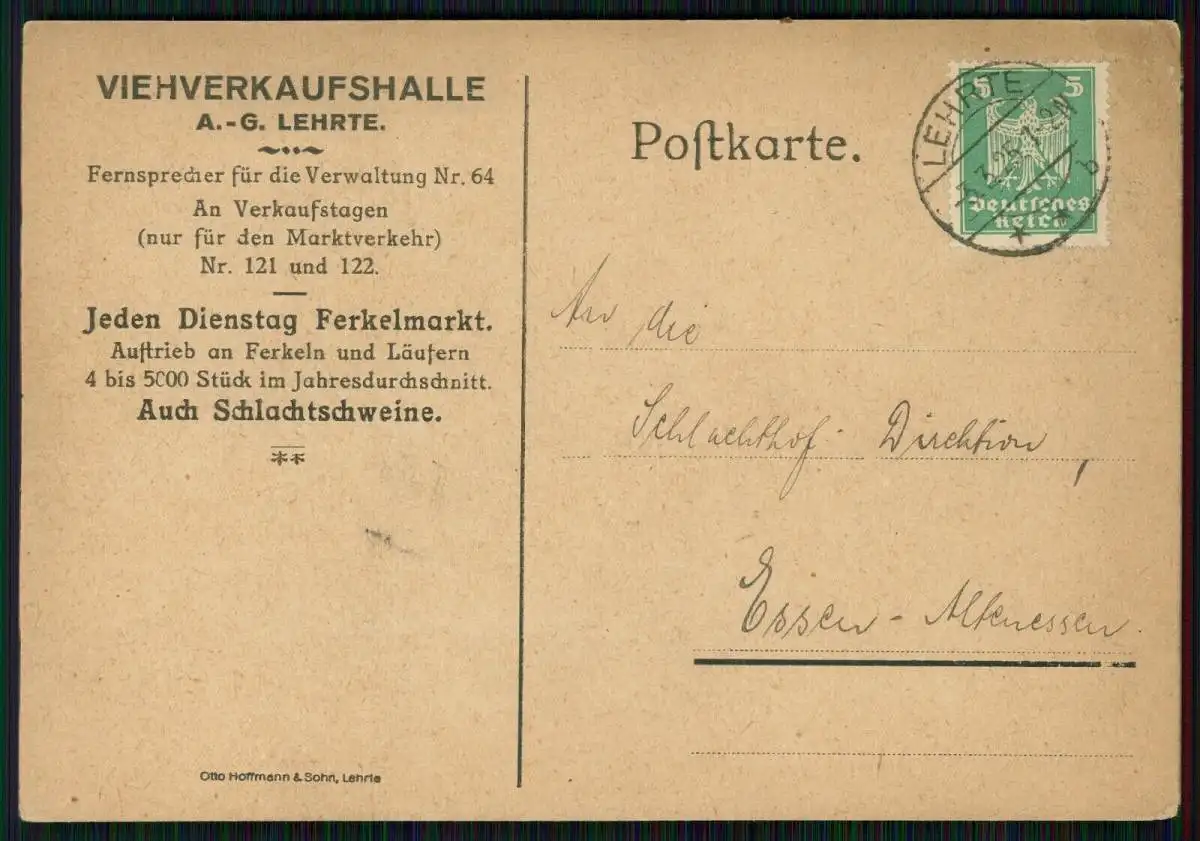 VIEHVERKAUFSHALLE
A.-G. LEHRTE.
Fernsprecher für die Verwaltung Nr. 64
An Verkaufstagen
(nur für den Marktverkehr)
Nr. 121 und 122.
Jeden Dienstag Ferkelmarkt.
Auftrieb an Ferkeln und Läufern
4 bis 5000 Stück im Jahresdurchschnitt.
Auch Schlachtschweine.
Otto Hoffmann & Sohn, Lehrte
Postkarte.
5 5
Deutsches
Reich
LEHRTE
1-2N
b
An die
Schlachthof-Direktion,
Essen-Altenessen.